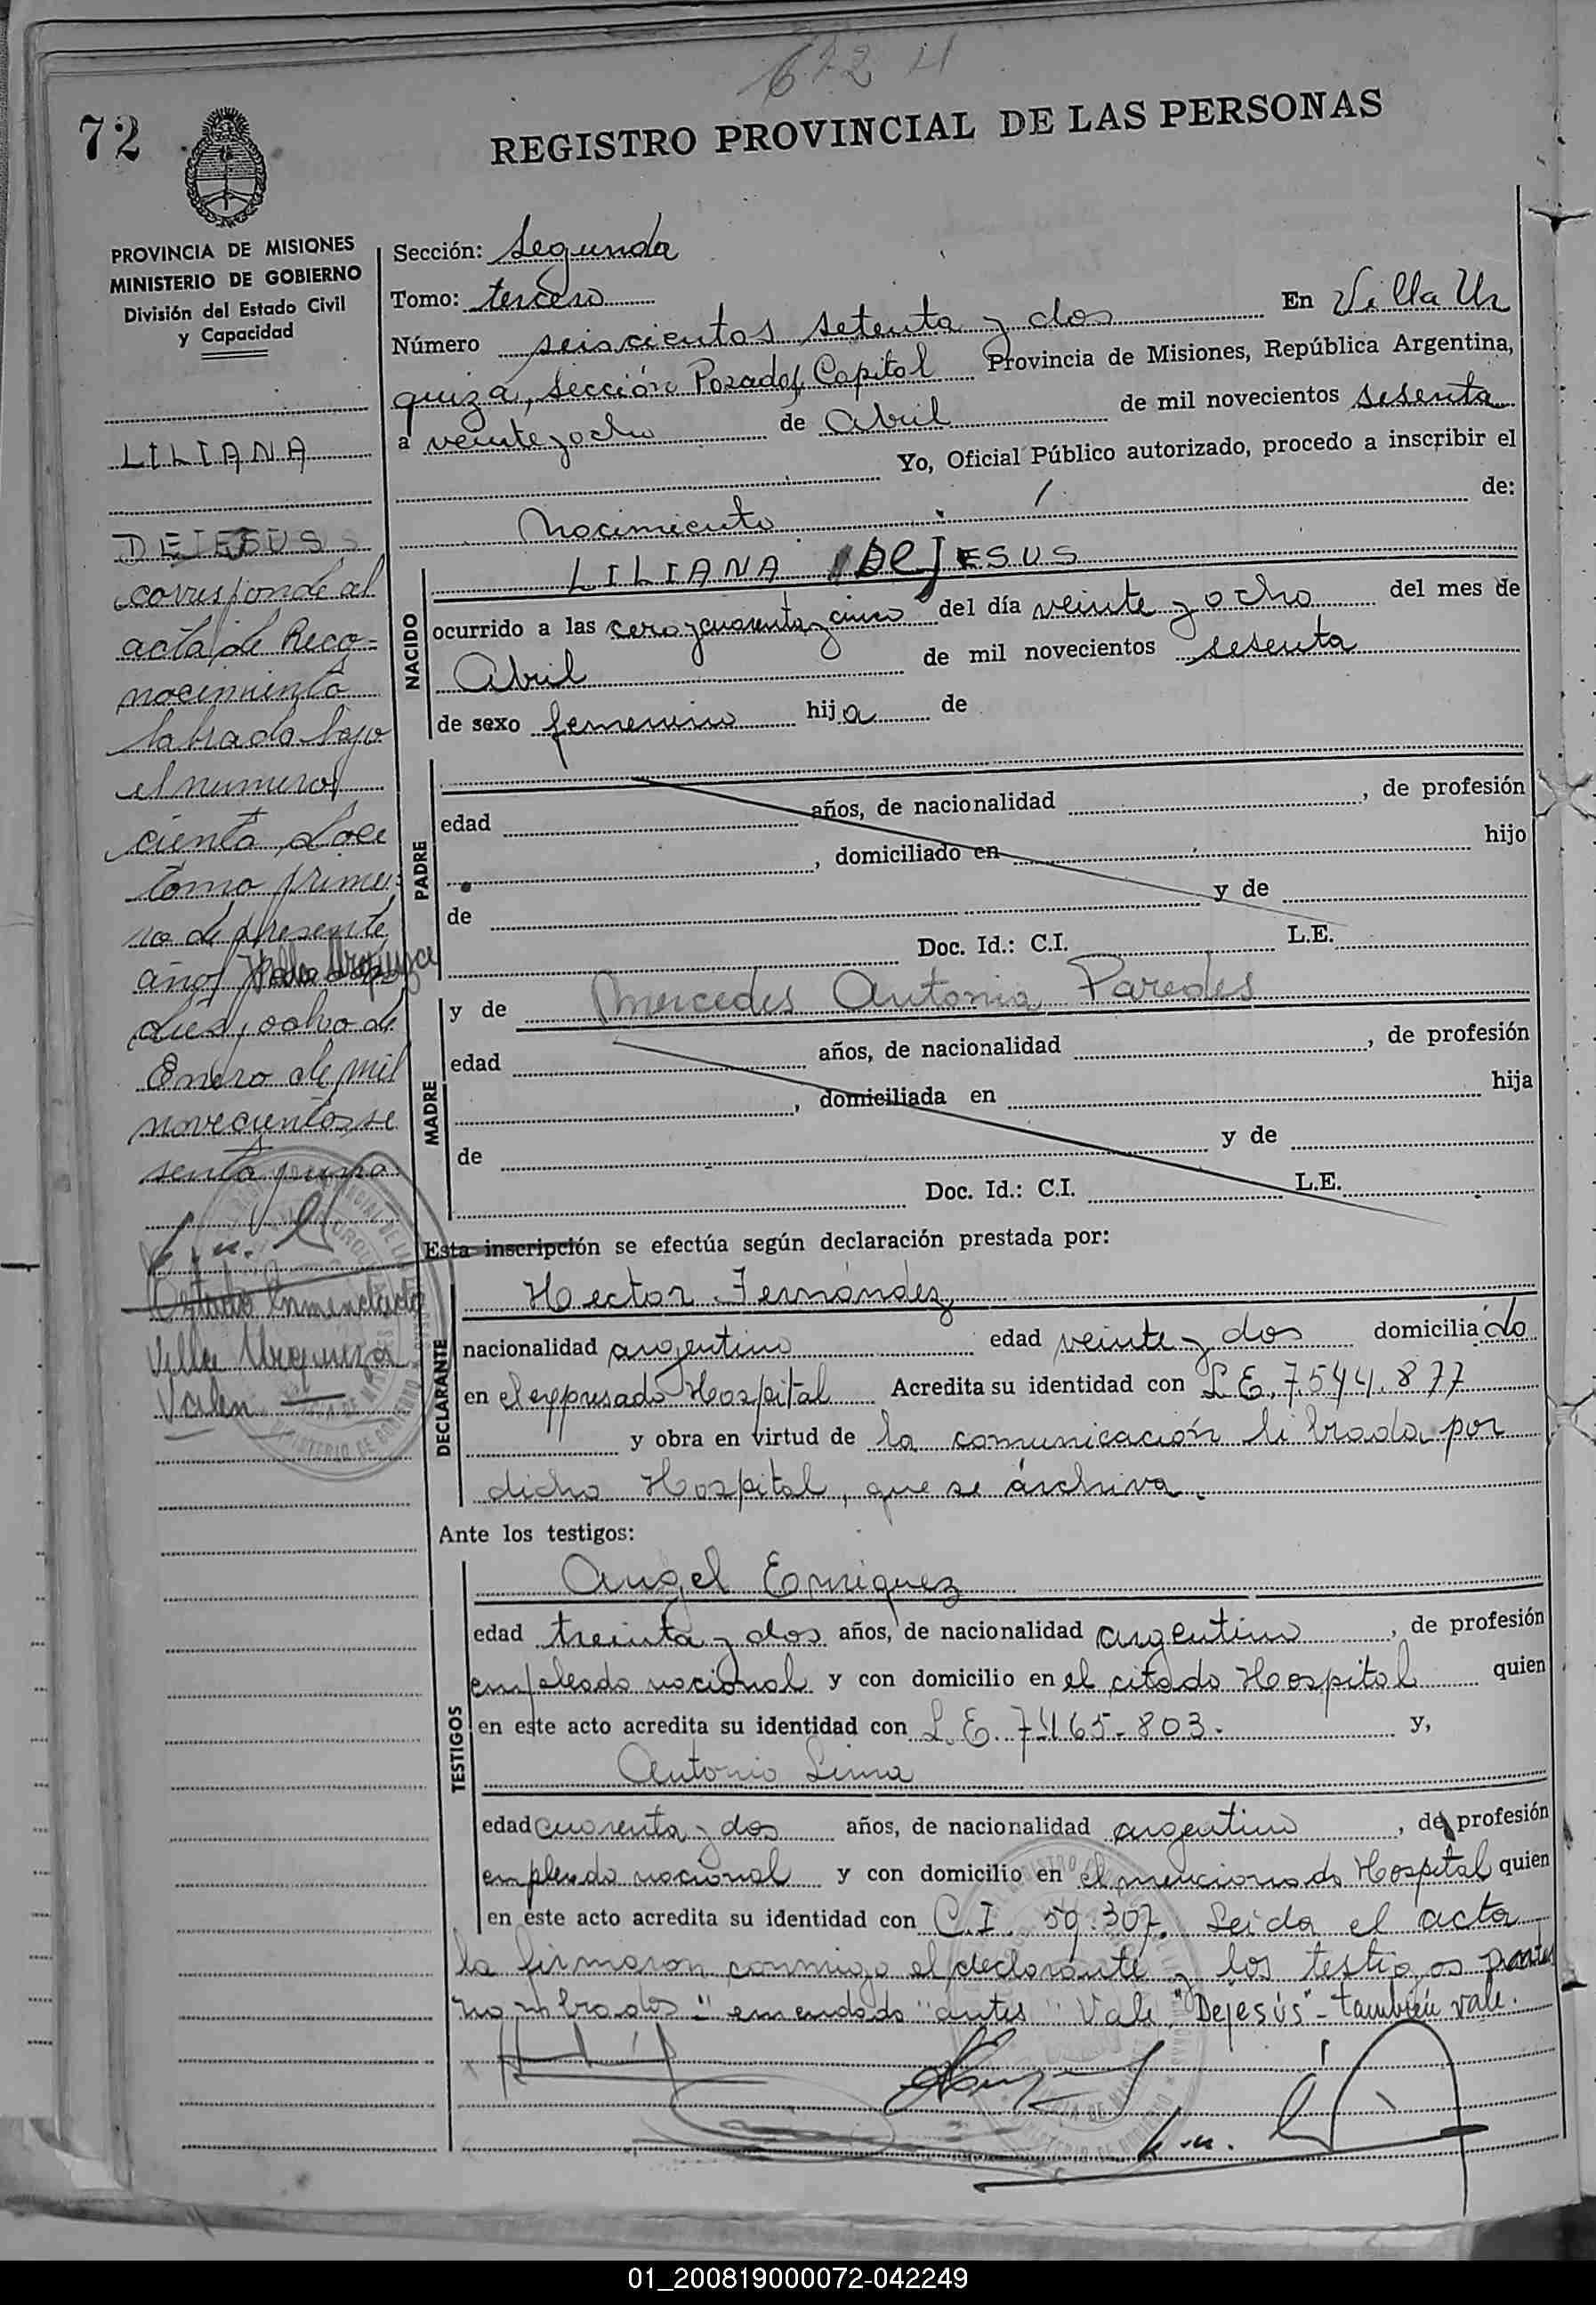 672 H
72
REGISTRO PROVINCIAL DE LAS PERSONAS
PROVINCIA DE MISIONES
MINISTERIO DE GOBIERNO
División del Estado Civil
y Capacidad
LILIANA
DEJESUS
corresponde al
acta de Reco=
nocimiento
labrada bajo
el numero
ciento doce
tomo prime=
ro de presente
año, Villa Urquiza
diez y ocho de
Enero de mil
novecientos se
senta y uno
Villa Urquiza
Valen
Sección: Segunda
Tomo: tercero
Número seiscientos setenta y dos En Villa Ur
quiza, sección Posadas Capital Provincia de Misiones, República Argentina,
a veinte y ocho de Abril de mil novecientos sesenta
Yo, Oficial Público autorizado, procedo a inscribir el
Nacimiento de:
NACIDO
LILIANA DeJESUS
ocurrido a las cero y cuarenta y cinco del día veinte y ocho del mes de
Abril de mil novecientos sesenta
de sexo femenino hija de
PADRE
edad años, de nacionalidad , de profesión
, domiciliado en hijo
de y de
Doc. Id.: C.I. L.E.
MADRE
y de Mercedes Antonia Paredes
edad años, de nacionalidad , de profesión
, domiciliada en hija
de y de
Doc. Id.: C.I. L.E.
Esta inscripción se efectúa según declaración prestada por:
DECLARANTE
Hector Fernández
nacionalidad argentino edad veinte y dos domiciliado
en el expresado Hospital Acredita su identidad con L.E. 7.544.877
y obra en virtud de la comunicación librada por
dicho Hospital, que se archiva.
Ante los testigos:
TESTIGOS
Angel Enriquez
edad treinta y dos años, de nacionalidad argentino, de profesión
empleado nacional y con domicilio en el citado Hospital quien
en este acto acredita su identidad con L.E. 7.465-803.- y,
Antonio Lima
edad cuarenta y dos años, de nacionalidad argentino, de profesión
empleado nacional y con domicilio en el mencionado Hospital quien
en este acto acredita su identidad con C.I. 59.307. Leida el acta
la firmaron conmigo el declarante y los testigos antes
nombrados - "enmendado "antes" Vale. "Dejesús" - también vale.
01_200819000072-042249